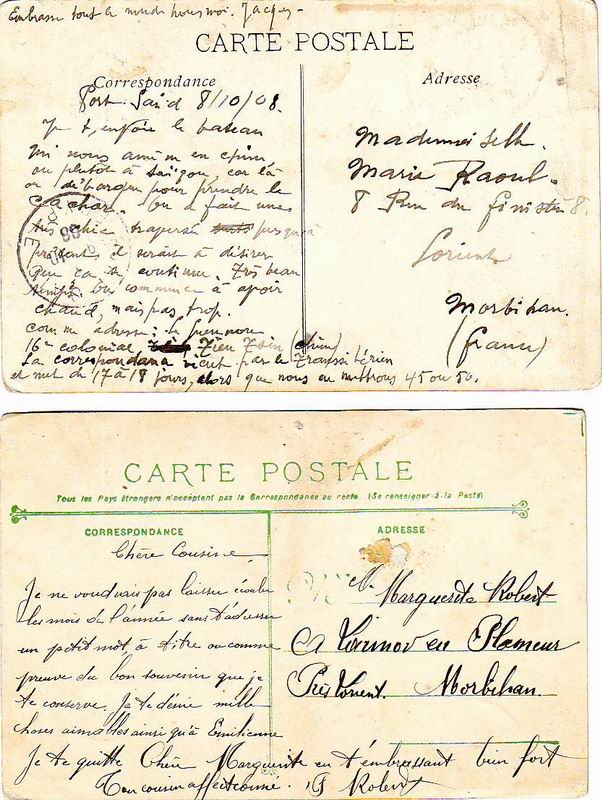 Embrasse tout le monde pour moi. Jacques
CARTE POSTALE
Correspondance
Adresse
Port-Saïd 8/10/08.
Je t'envoie le bateau
qui nous amène en Chine,
ou plutôt à Saïgon, car là
on débarque pour prendre le
On a fait une
très chic traversée jusqu'à
présent, il serait à désirer
que ça continue. Très beau
temps. On commence à avoir
chaud, mais pas trop.
comme adresse:
16e colonial Tien Tsin (Chine)
La correspondance vient par le Transsibérien
et met de 17 à 18 jours, alors que nous en mettrons 45 ou 50.
Mademoiselle
Marie Raoul.
8 Rue du finistère 8.
Lorient
Morbihan.
(France)
CARTE POSTALE
Tous les Pays étrangers n'acceptent pas la Correspondance au recto. (Se renseigner à la Poste)
CORRESPONDANCE
ADRESSE
Chère Cousine,
Je ne voudrais pas laisser écouler
les mois de l'année sans t'adresser
un petit mot, à titre ou comme
preuve du bon souvenir que je
te conserve. Je te désire mille
choses aimables ainsi qu'à Emilienne
Je te quitte Chère Marguerite en t'embrassant bien fort
Ton cousin affectionné. Robert
Marguerite Robert
en Plœmeur
Près Lorient. Morbihan.